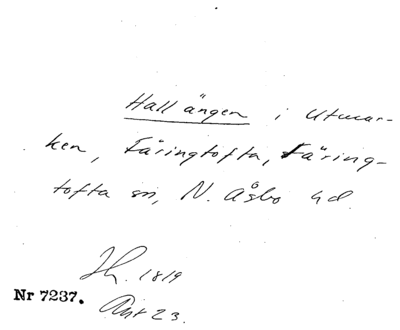 Hallängen i Utmar-
ken, Färingtofta, Färing-
tofta sn, N. Åsbo hd.
Jh. 1819
Nr 7237.
Akt 23.